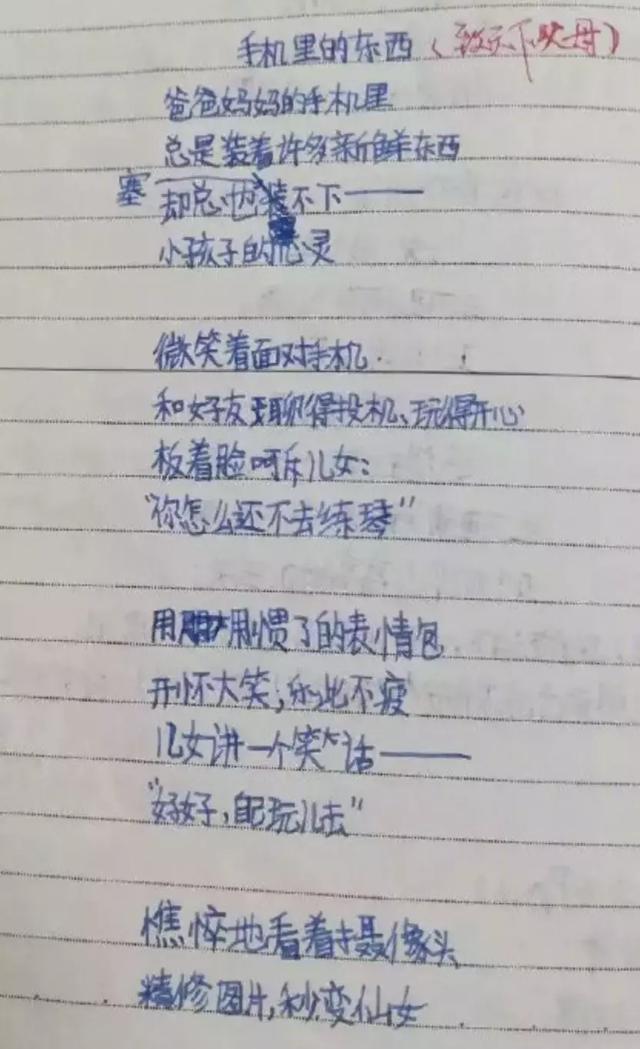 手机里的东西(致天下父母)
爸爸妈妈的手机里
总是装着许多新鲜东西
塞
却总也装不下——
小孩子的心灵
微笑着面对手机
和好友聊得投机、玩得开心
板着脸呵斥儿女:
"你怎么还不去练琴"
用用惯了的表情包
开怀大笑;乐此不疲
儿女讲一个笑话——
"好好,自己玩儿去"
憔悴地看着摄像头
精修图片,秒变仙女